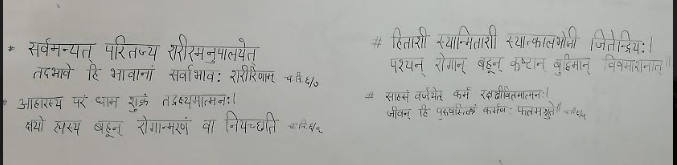 * सर्वमन्यत् परित्यज्य शरीरमनुपालयेत
तदभावे हि भावानां सर्वाभावः शरीरिणाम् च नि ६/७
* आहारस्य परं धाम शुक्रं तद्रक्ष्यमात्मनः।
क्षयो ह्यस्य बहून् रोगान्मरणं वा नियच्छति च नि ६/९
# हिताशी स्यान्मिताशी स्यात्कालभोजी जितेन्द्रियः।
पश्यन् रोगान् बहून् कष्टान् बुद्धिमान् विषमाशनात्॥
# साहसं वर्जयेत् कर्म रक्षञ्जीवितमात्मनः।
जीवन् हि पुरुषस्त्विष्टं कर्मणः फलमश्नुते॥